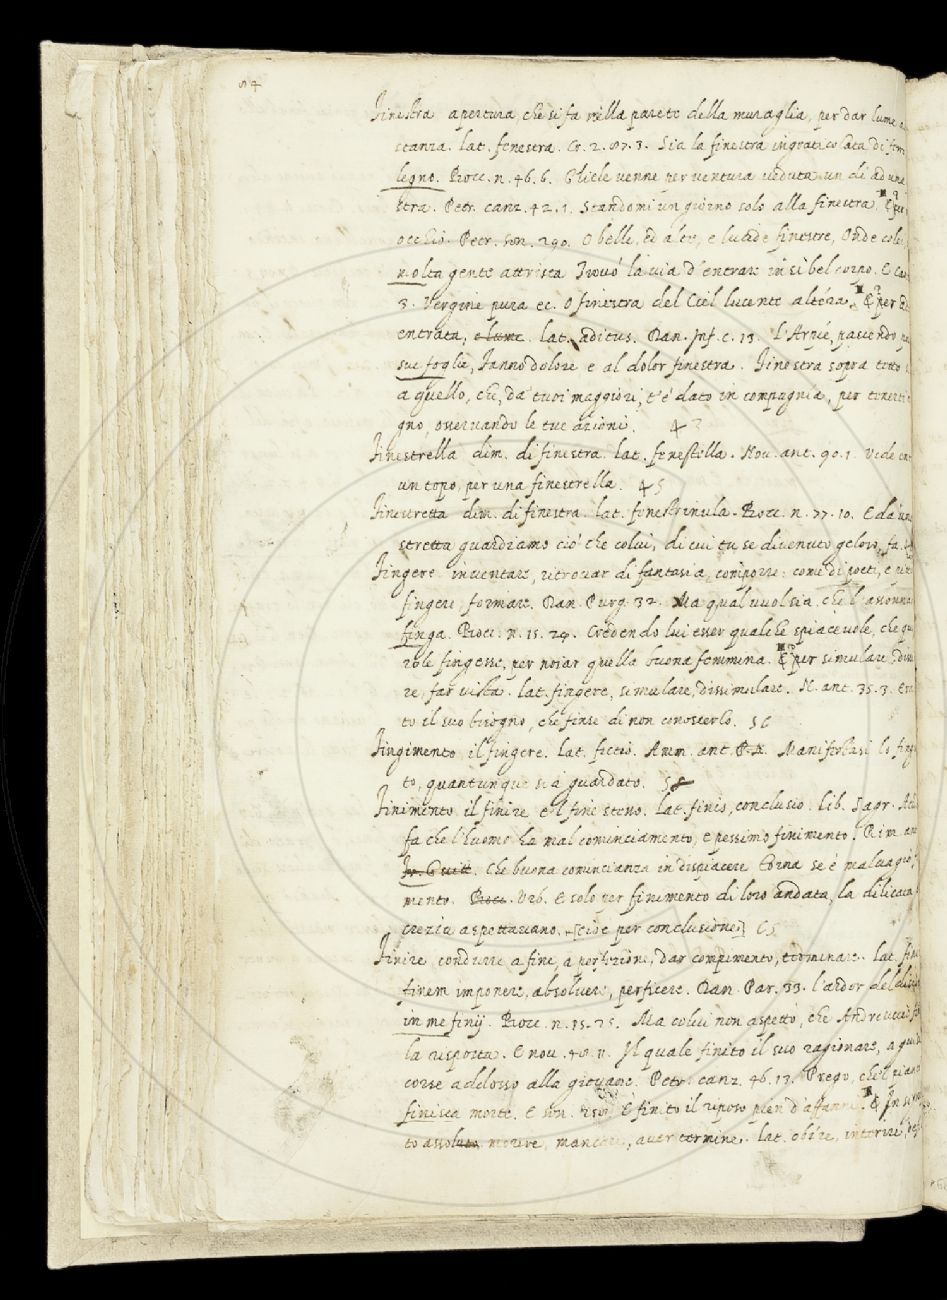 84
Finestra apertura, che si fa nella parete della muraglia, per dar lume
stanza. lat. fenestra. Cr. 2. 87. 3. Sia la finestra ingraticolata di
legno. Bocc. n. 46. 6. veduta un dì ad una
stra. Petr. canz. 42. 1. Standomi un giorno solo alla finestra. E per
occhio. Petr. son. 290. O belle, ed alte, e lucide finestre, Onde
molta gente attrista Trovò la via d'entrare in sì bel corpo. E
3. Vergine pura ec. O finestra del Ciel lucente altera. E per
entrata, e lume. lat. aditus. Dan. Inf. c. 13. L'Arpíe, pascendo
sue foglie, Fanno dolore e al dolor finestra. Finestra sopra tetto
a quello, che, da' tuoi maggiori, t'è dato in compagnia, per
gno, osservando le tue azioni. 4
Finestrella dim. di finestra. lat. fenestella. Nov. ant. 90. 1. Vide
un topo, per una finestrella. 45
Finestretta dim. di finestra. lat. fenestrinula. Bocc. n. 77. 10. E da
stretta guardiamo ciò che colui, di cui tu se divenuto geloso, fa.
Fingere inventare, ritrovar di fantasia, comporre: come di poeti, e
fingere, formare. Dan. Purg. 32. Ma qual vuol sia, che l'assonnar
finga. Bocc. n. 15. 24. Credendo lui esser qualche spiacevole, che
role fingesse, per noiar quella buona femmina. E per simulare,
re, far vista. lat. fingere, simulare, dissimulare. N. ant. 35. 3.
to il suo bisogno, che finse di non conoscerlo. 56
Fingimento il fingere. lat. fictio. Amm. ant. Manifestasi lo
to, quantunque sia guardato.
Finimento il finire e 'l fine stesso. lat. finis, conclusio. lib. Sagr.
fa che l'huomo ha mal cominciamento, e pessimo finimento. Rim. ant.
Fr. Guitt. Che buona comincianza in dispiacere Torna se è malvagio
mento. Bocc. Urb. E solo per finimento di loro andata, la dilicata
crezia aspettavano. [cioè per conclusione] 65
Finire condurre a fine, a perfezione, dar compimento, terminare. lat.
finem imponere, absolvere, perficere. Dan. Par. 33. l'ardor del
in me finij. Bocc. n. 15. 25. Ma colui non aspettò, che Andreuccio
la risposta. E nov. 48. 11. Il quale finito il suo ragionare, a
corse addosso alla giovane. Petr. canz. 46. 13. Prego, che'l
finisca morte. E son. È finito il riposo pien d'affanni. E In
to assoluto morire, mancare, aver termine. lat. obire, interire,